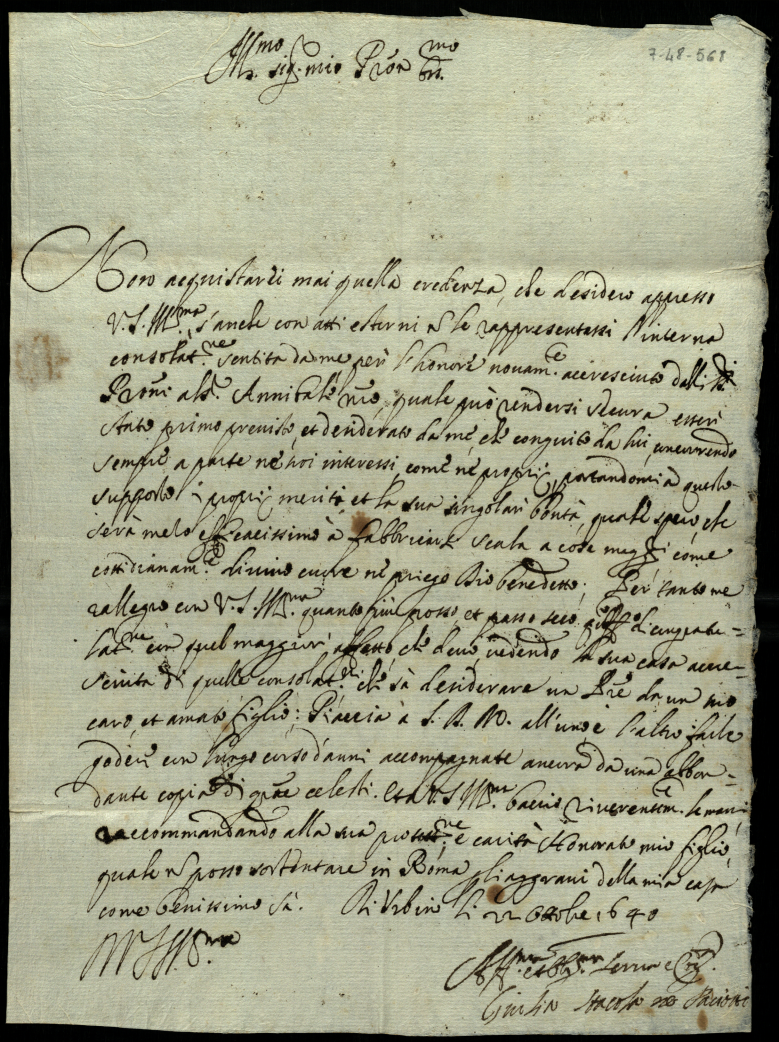 Ill.mo sig.r mio Pron mo
7-48-568
Non acquistarei mai quella credenza, che desidero appresso
V.S. Ill.ma, s'anche con atti esterni nō le rappresentassi l'interna
consolat.ne sentita da me per l'honore novam.te accresciuto dalli
Proni al S.r Annibale quale può rendersi sicura esser
stato primo previsto et desiderato da me che conseguito da lui, concorrendo
sempre a parte ne suoi interessi come ne proprij, portandomi à questo
supposto i proprij meriti, et la sua singolar bontà, quale spero che
serà melo efficacissimo à fabbricare scala a cose maggiori come
cottidianam.te di vivo cuore ne priego Dio benedetto; Per tanto me
rallegro con V.S. Ill.ma quanto più posso, et passo seco di congratu=
lat.ne con quel maggior affetto, che devo, vedendo la sua casa accre=
sciuta di quelle consolat.ni che sà desiderare un Pre da un suo
caro, et amato figlio: Piaccia à S. D. M. all'uno e l'altro farle
godere con lungo corso d'anni accompagnate ancora da una abbon=
dante copia di grãe celesti. Et a V.S. Ill.ma baccio riverentem.te le mani
raccommandando alla sua protett.ne e carità Honorato mio figlio
quale nō posso sostentare in Roma gli aggravi della mia casa
come benissimo sà. Di Urbino li 22 Ottobre 1640
D V S Ill.ma
Aff.ma et Obl.ma Serva
Giulia Staccoli Paciotti